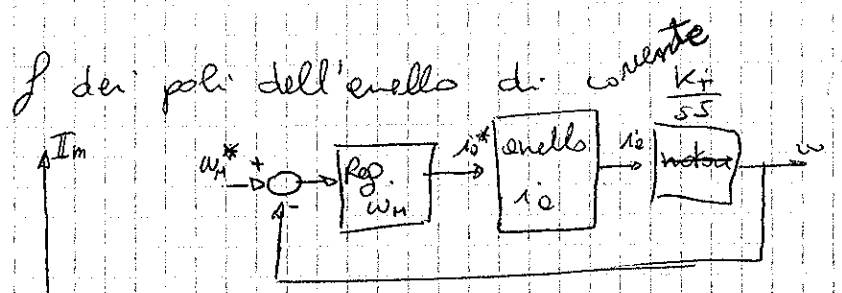 f dei poli dell'anello di corrente
KT
sJ
Im
ωM* +
-
Reg. ωM
ia*
anello ia
ia
motore
ω